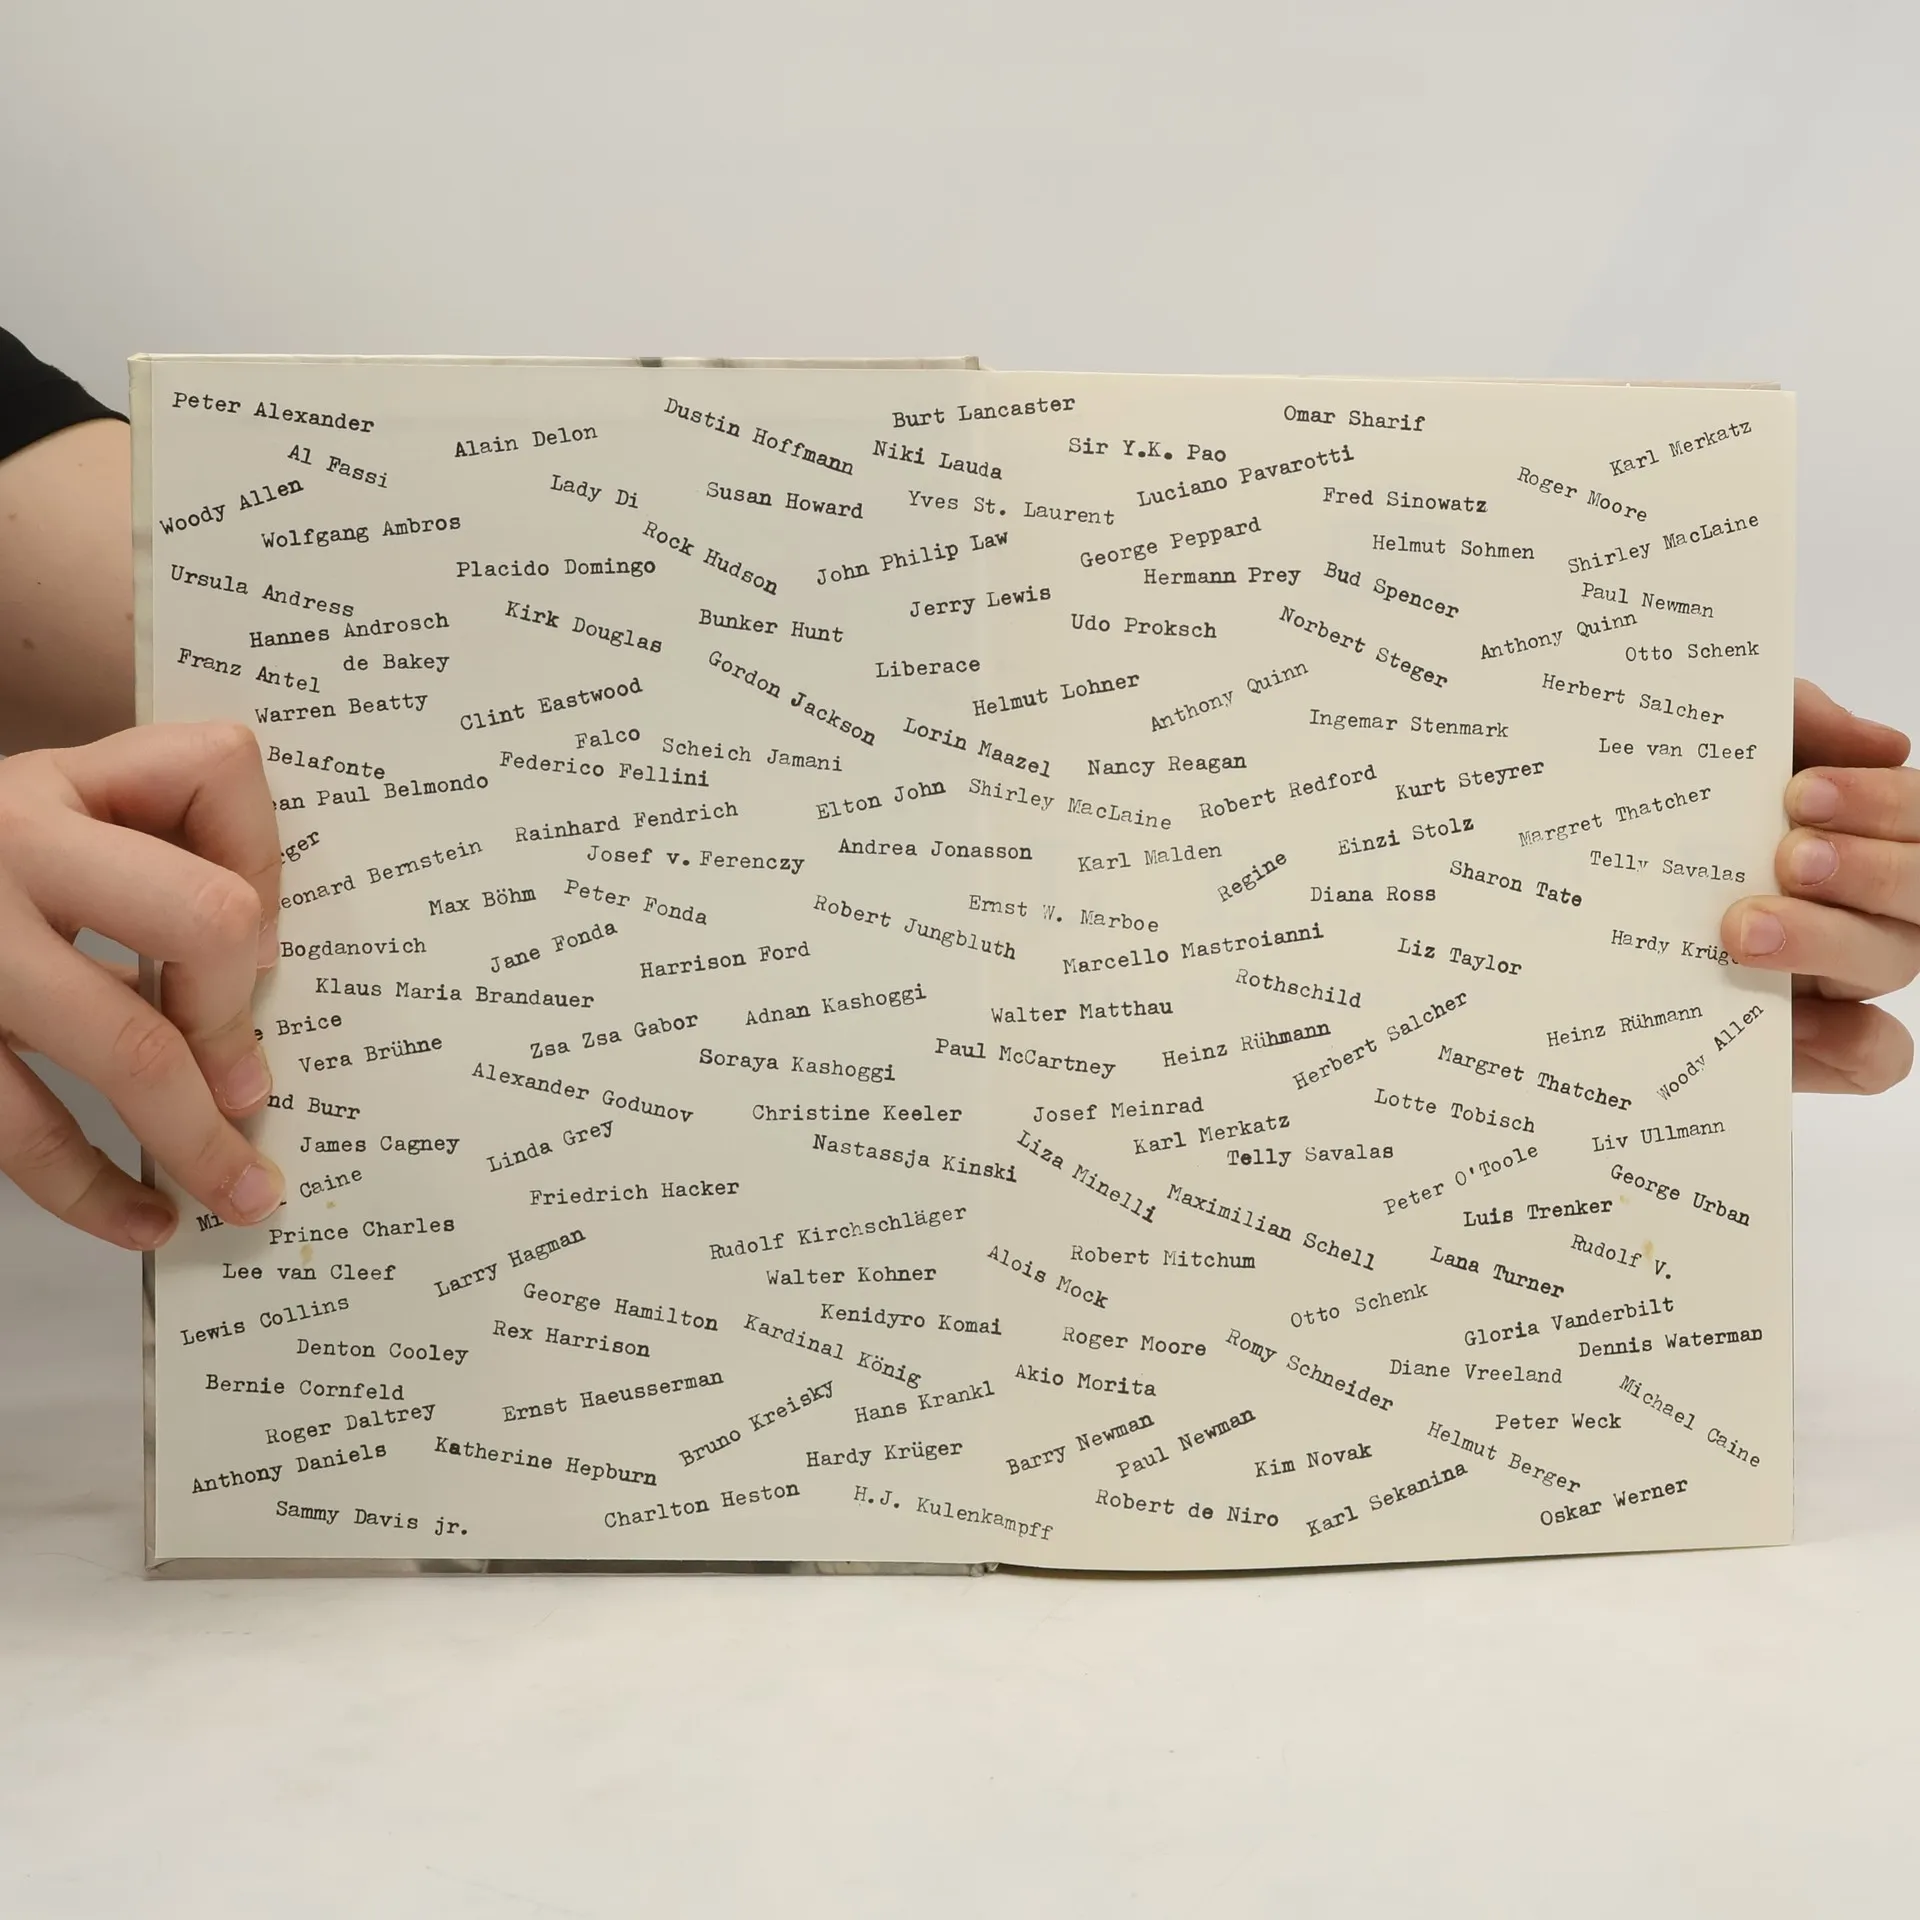 Peter Alexander
Al Fassi
Alain Delon
Dustin Hoffmann
Woody Allen
Wolfgang Ambros
Lady Di
Susan Howard
Rock Hudson
Placido Domingo
Ursula Andress
Hannes Androsch
Kirk Douglas
Bunker Hunt
Franz Antel
de Bakey
Warren Beatty
Clint Eastwood
Gordon Jackson
Falco
Scheich Jamani
Belafonte
Federico Fellini
an Paul Belmondo
Rainhard Fendrich
Elton John
ger
eonard Bernstein
Josef v. Ferenczy
Andrea Jonasson
Max Böhm
Peter Fonda
Robert Jungbluth
Bogdanovich
Jane Fonda
Harrison Ford
Klaus Maria Brandauer
Adnan Kashoggi
e Brice
Vera Brühne
Zsa Zsa Gabor
Soraya Kashoggi
Alexander Godunov
nd Burr
Christine Keeler
James Cagney
Linda Grey
Nastassja Kinski
Mi Caine
Friedrich Hacker
Prince Charles
Rudolf Kirchschläger
Lee van Cleef
Larry Hagman
Walter Kohner
Lewis Collins
George Hamilton
Kenidyro Komai
Denton Cooley
Rex Harrison
Kardinal König
Bernie Cornfeld
Ernst Haeusserman
Bruno Kreisky
Hans Krankl
Roger Daltrey
Anthony Daniels
Katherine Hepburn
Hardy Krüger
Sammy Davis jr.
Charlton Heston
H.J. Kulenkampff
Burt Lancaster
Niki Lauda
Sir Y.K. Pao
Omar Sharif
Karl Merkatz
Yves St. Laurent
Luciano Pavarotti
Fred Sinowatz
Roger Moore
John Philip Law
George Peppard
Helmut Sohmen
Shirley MacLaine
Jerry Lewis
Hermann Prey
Bud Spencer
Paul Newman
Udo Proksch
Norbert Steger
Anthony Quinn
Otto Schenk
Liberace
Helmut Lohner
Anthony Quinn
Herbert Salcher
Lorin Maazel
Nancy Reagan
Ingemar Stenmark
Lee van Cleef
Shirley MacLaine
Robert Redford
Kurt Steyrer
Margret Thatcher
Karl Malden
Regine
Einzi Stolz
Telly Savalas
Ernst W. Marboe
Diana Ross
Sharon Tate
Marcello Mastroianni
Liz Taylor
Hardy Krüg
Walter Matthau
Rothschild
Paul McCartney
Heinz Rühmann
Herbert Salcher
Heinz Rühmann
Margret Thatcher
Woody Allen
Josef Meinrad
Karl Merkatz
Lotte Tobisch
Liv Ullmann
Liza Minelli
Telly Savalas
Peter O'Toole
George Urban
Maximilian Schell
Luis Trenker
Rudolf V.
Alois Mock
Robert Mitchum
Lana Turner
Otto Schenk
Gloria Vanderbilt
Roger Moore
Romy Schneider
Dennis Waterman
Akio Morita
Diane Vreeland
Michael Caine
Barry Newman
Paul Newman
Peter Weck
Kim Novak
Helmut Berger
Robert de Niro
Karl Sekanina
Oskar Werner